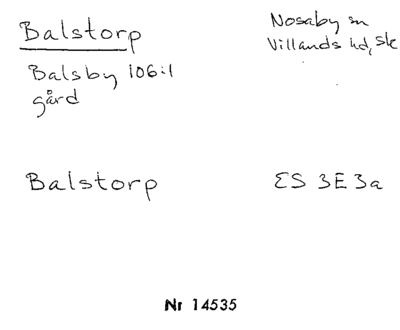 Balstorp
Nosaby sn
Villands hd, Sk
Balsby 106:1
gård
Balstorp
ES 3E3a
Nr 14535